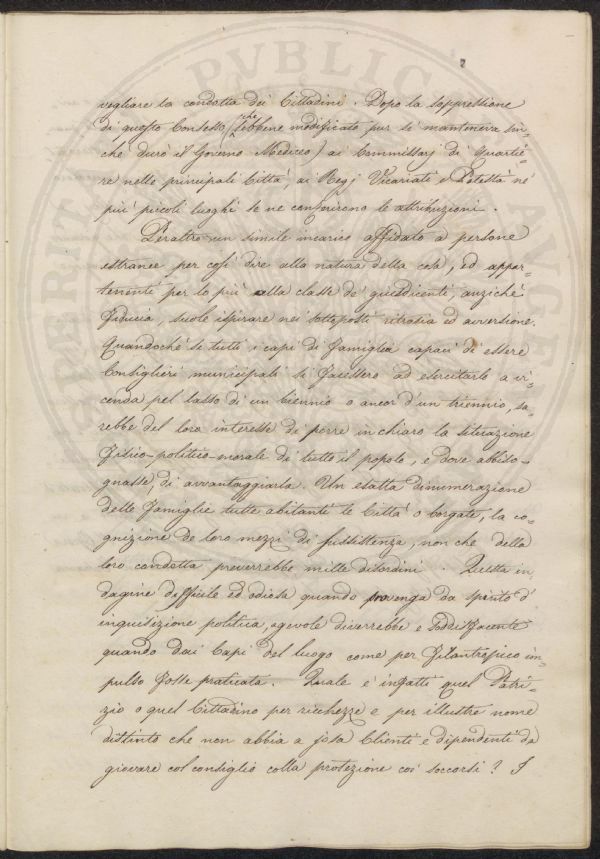 vegliare la condotta dei Cittadini. Dopo la soppressione
di questo Consesso (che sebbene modificato pur si manteneva sin-
chè durò il Governo Mediceo) ai Commissarj di Quartie-
re nelle principali Città, ai Regj Vicariati e Potestà ne'
più piccoli luoghi se ne conferirono le attribuzioni.
Peraltro un simile incarico affidato a persone
estranee per così dire alla natura della cosa, ed appar-
tenenti per lo più alla classe de' giusdicenti, anzichè
fiducia, suole ispirare nei sottoposti ritrosia ed avversione.
Quandochè se tutti i capi di famiglia capaci di essere
Consiglieri municipali si facessero ad esercitarlo a vi-
cenda pel lasso di un biennio o ancor d'un triennio, sa-
rebbe del loro interesse di porre in chiaro la situazione
fisico-politico-morale di tutto il popolo, e dove abbiso-
gnasse, di avvantaggiarla. Un esatta dinumerazione
delle famiglie tutte abitanti le Città o borgate, la co-
gnizione de loro mezzi di sussistenza, non che della
loro condotta preverrebbe mille disordini. Questa in-
dagine difficile ed odiosa quando provenga da spirito d'
inquisizione politica, agevole diverrebbe e soddisfacente
quando dai Capi del luogo come per filantropico im-
pulso fosse praticata. Quale è infatti quel Patri-
zio o quel Cittadino per ricchezze e per illustre nome
distinto che non abbia a josa Clienti e dipendenti da
giovare col consiglio colla protezione coi soccorsi? I
PVBLIC